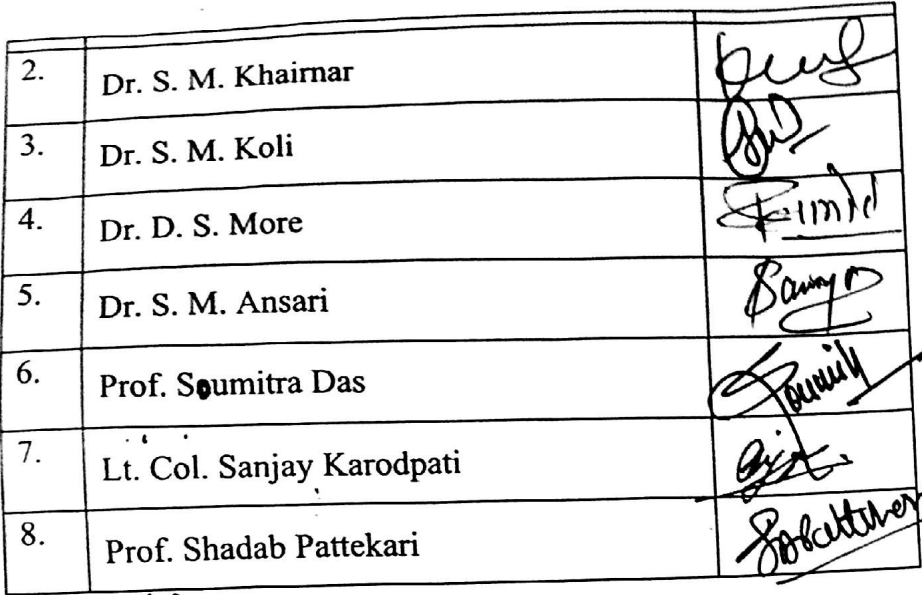 2. Dr. S. M. Khairnar
3. Dr. S. M. Koli
4. Dr. D. S. More
5. Dr. S. M. Ansari
6. Prof. Soumitra Das
7. Lt. Col. Sanjay Karodpati
8. Prof. Shadab Pattekari